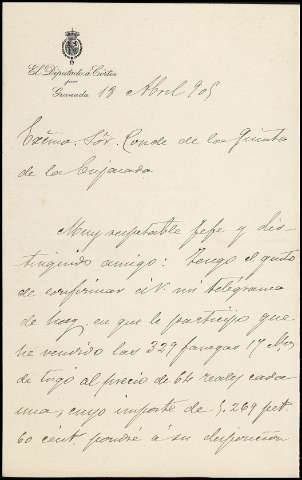 El Diputado a Cortes
por
Granada 13 Abril 905
Exćmo. Sór. Conde de las Quinta
de la Enjarada
Muy respetable Jefe y dis-
tinguido amigo: Tengo el gusto
de confirmar á V. mi telegrama
de hoy, en que le participo que
he vendido las 329 fanegas 17
de trigo al precio de 64 reales cada
una, cuyo importe de 5.269 pet.
60 cént. pondré á su disposición